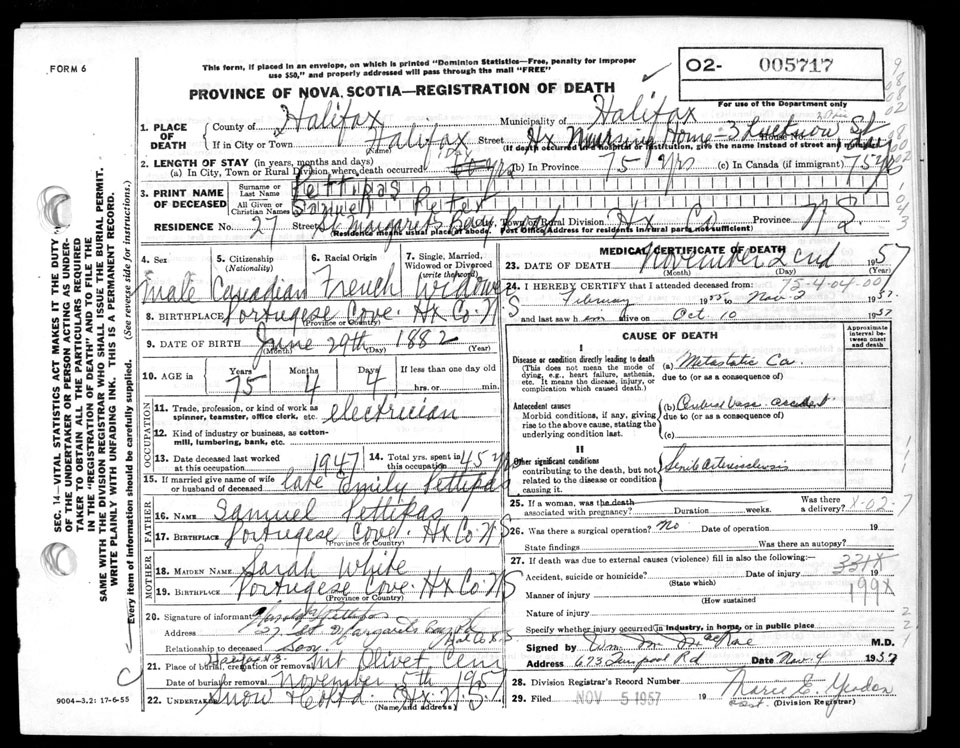 FORM 6
This form, if placed in an envelope, on which is printed "Dominion Statistics—Free, penalty for improper
use $50," and properly addressed will pass through the mail "FREE"
PROVINCE OF NOVA SCOTIA—REGISTRATION OF DEATH
02- 005717
For use of the Department only
1. PLACE OF DEATH
County of Halifax Municipality of Halifax
If in City or Town Halifax Street Hx Nursing Home - 3 Lucknow St
(Name) House No.
(If death occurred in a hospital or institution, give the name instead of street and number)
2. LENGTH OF STAY (in years, months and days)
(a) In City, Town or Rural Division where death occurred yrs (b) In Province 75 yrs (c) In Canada (if immigrant) 75 yrs
3. PRINT NAME OF DECEASED
Surname or Last Name Pettipas
All Given or Christian Names Samuel Peter
RESIDENCE No. 27 Street St Margarets Bay Rd Town or Rural Division Hx Co Province NS
(Residence means usual place of abode. Post Office Address for residents in rural parts not sufficient)
4. Sex male
5. Citizenship (Nationality) Canadian
6. Racial Origin French
7. Single, Married, Widowed or Divorced (write the word) Widower
8. BIRTHPLACE Portugese Cove. Hx Co. NS
(Province or Country)
9. DATE OF BIRTH June 29th 1882
(Month) (Day) (Year)
10. AGE in Years 75 Months 4 Days 4 If less than one day old
hrs. or min.
OCCUPATION
11. Trade, profession, or kind of work as spinner, teamster, office clerk, etc. electrician
12. Kind of industry or business, as cotton-mill, lumbering, bank, etc.
13. Date deceased last worked at this occupation 1947 14. Total yrs. spent in this occupation 45 yrs
15. If married give name of wife or husband of deceased late Emily Pettipas
FATHER
16. NAME Samuel Pettipas
17. BIRTHPLACE Portugese Cove. Hx Co. NS
(Province or Country)
MOTHER
18. MAIDEN NAME Sarah White
19. BIRTHPLACE Portugese Cove. Hx Co. NS
(Province or Country)
20. Signature of informant Pettipas
Address 27 St Margarets Bay Rd
Relationship to deceased Son
21. Place of burial, cremation or removal Mt Olivet Cem
Date of burial or removal November 5th 1957
22. Undertaker Snow & Co Ltd. Hx. N.S.
(Name and address)
MEDICAL CERTIFICATE OF DEATH
23. DATE OF DEATH November 2nd 1957
(Month) (Day) (Year)
75-4-04-007
24. I HEREBY CERTIFY that I attended deceased from:
February 1955 to Nov. 2 1957
and last saw him alive on Oct. 10 1957
CAUSE OF DEATH
Approximate interval between onset and death
I
Disease or condition directly leading to death
(This does not mean the mode of dying, e.g., heart failure, asthenia, etc. It means the disease, injury, or complication which caused death.)
(a) Metastatic Ca.
due to (or as a consequence of)
Antecedent causes
Morbid conditions, if any, giving rise to the above cause, stating the underlying condition last.
(b) Cerebral vasc. accident
due to (or as a consequence of)
(c)
II
Other significant conditions
contributing to the death, but not related to the disease or condition causing it.
Senile Arteriosclerosis
25. If a woman, was the death associated with pregnancy? Duration weeks. Was there a delivery?
26. Was there a surgical operation? No Date of operation 19
State findings Was there an autopsy?
27. If death was due to external causes (violence) fill in also the following:
Accident, suicide or homicide? Date of injury 19
(State which)
331X
199X
Manner of injury
(How sustained)
Nature of injury
Specify whether injury occurred in industry, in home, or in public place
Signed by Wm. M. MacRae M.D.
Address 673 Liverpool Rd Date Nov. 4 1957
28. Division Registrar's Record Number
29. Filed NOV 5 1957 19
Marie E.
(Division Registrar)
SEC. 14—VITAL STATISTICS ACT MAKES IT THE DUTY
OF THE UNDERTAKER OR PERSON ACTING AS UNDERTAKER TO OBTAIN ALL THE PARTICULARS REQUIRED
IN THE "REGISTRATION OF DEATH" AND TO FILE THE
SAME WITH THE DIVISION REGISTRAR WHO SHALL ISSUE THE BURIAL PERMIT.
WRITE PLAINLY WITH UNFADING INK. THIS IS A PERMANENT RECORD.
Every item of information should be carefully supplied. (See reverse side for instructions.)
C
9004—3.2: 17-6-55